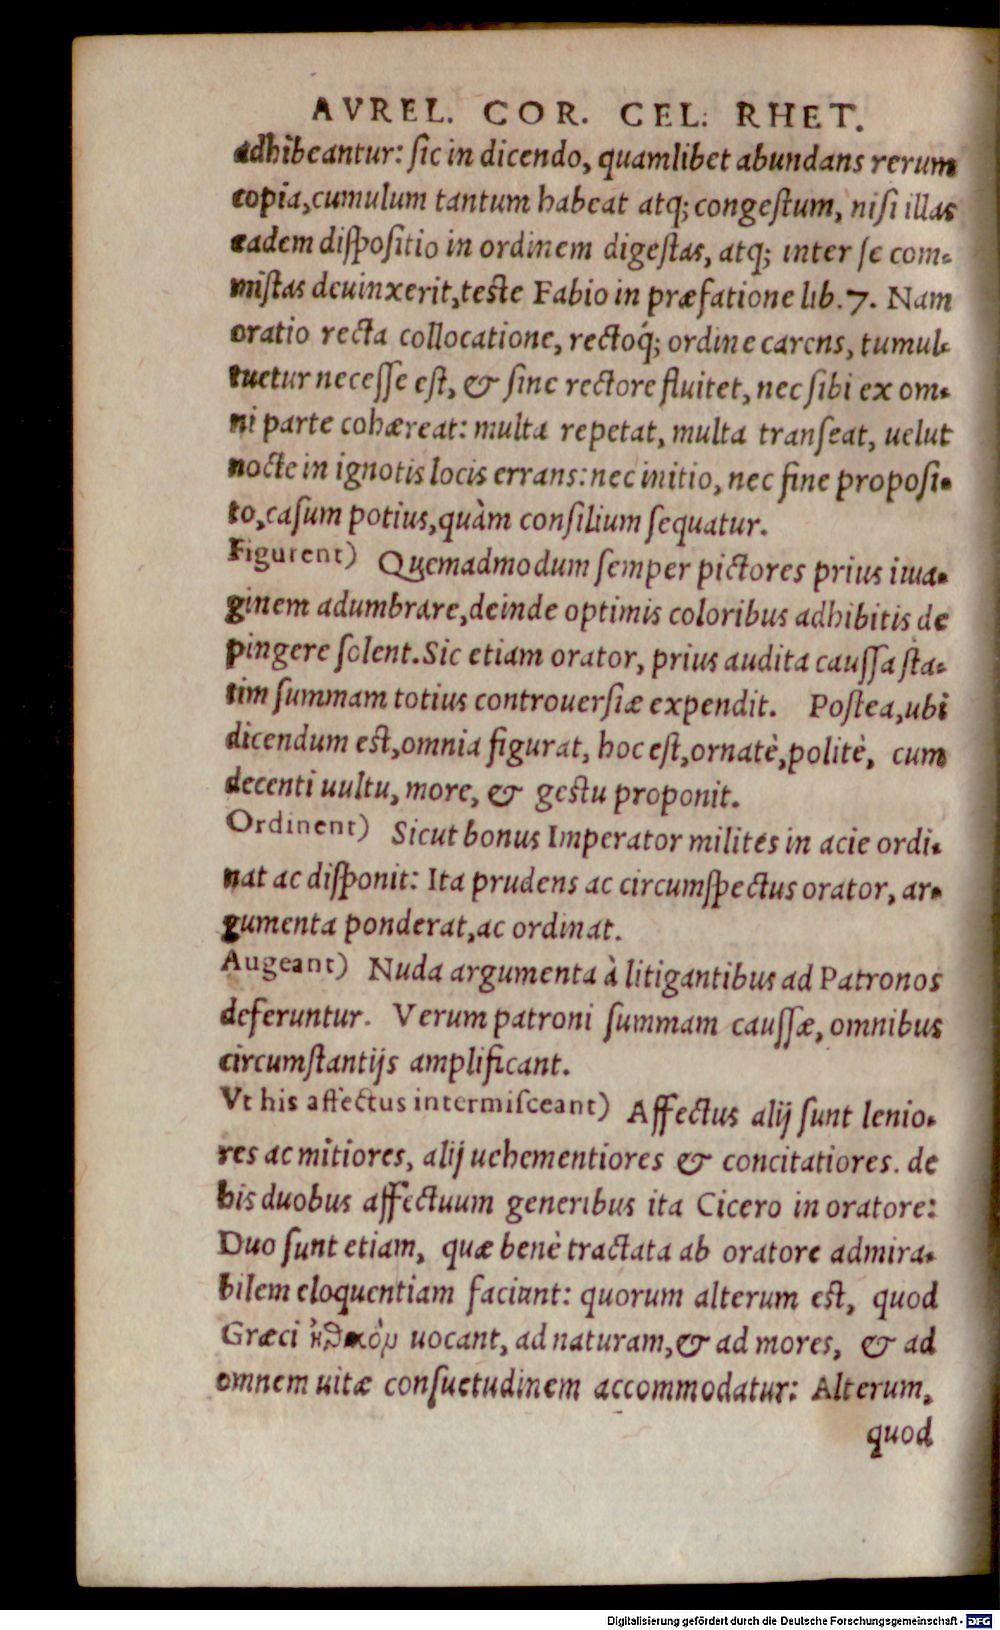 AVREL. COR. CEL. RHET.
adhibeantur: sic in dicendo, quamlibet abundans rerum
copia, cumulum tantum habeat atq; congestum, nisi illas
eadem dispositio in ordinem digestas, atq; inter se com-
mistas deuinxerit, teste Fabio in præfatione lib. 7. Nam
oratio recta collocatione, rectoq́; ordine carens, tumul-
tuetur necesse est, & sine rectore fluitet, nec sibi ex om-
ni parte cohæreat: multa repetat, multa transeat, uelut
nocte in ignotis locis errans: nec initio, nec fine proposi-
to, casum potius, quàm consilium sequatur.
Figurent) Quemadmodum semper pictores prius ima-
ginem adumbrare, deinde optimis coloribus adhibitis de
pingere solent. Sic etiam orator, prius audita caussa sta-
tim summam totius controuersiæ expendit. Postea, ubi
dicendum est, omnia figurat, hoc est, ornatè, politè, cum
decenti uultu, more, & gestu proponit.
Ordinent) Sicut bonus Imperator milites in acie ordi-
nat ac disponit: Ita prudens ac circumspectus orator, ar-
gumenta ponderat, ac ordinat.
Augeant) Nuda argumenta à litigantibus ad Patronos
deferuntur. Verum patroni summam caussæ, omnibus
circumstantijs amplificant.
Vt his affectus intermisceant) Affectus alij sunt lenio-
res ac mitiores, alij uehementiores & concitatiores. de
his duobus affectuum generibus ita Cicero in oratore:
Duo sunt etiam, quæ benè tractata ab oratore admira-
bilem eloquentiam faciunt: quorum alterum est, quod
Græci ἠθικὸν uocant, ad naturam, & ad mores, & ad
omnem uitæ consuetudinem accommodatur: Alterum,
quod
Digitalisierung gefördert durch die Deutsche Forschungsgemeinschaft - DFG